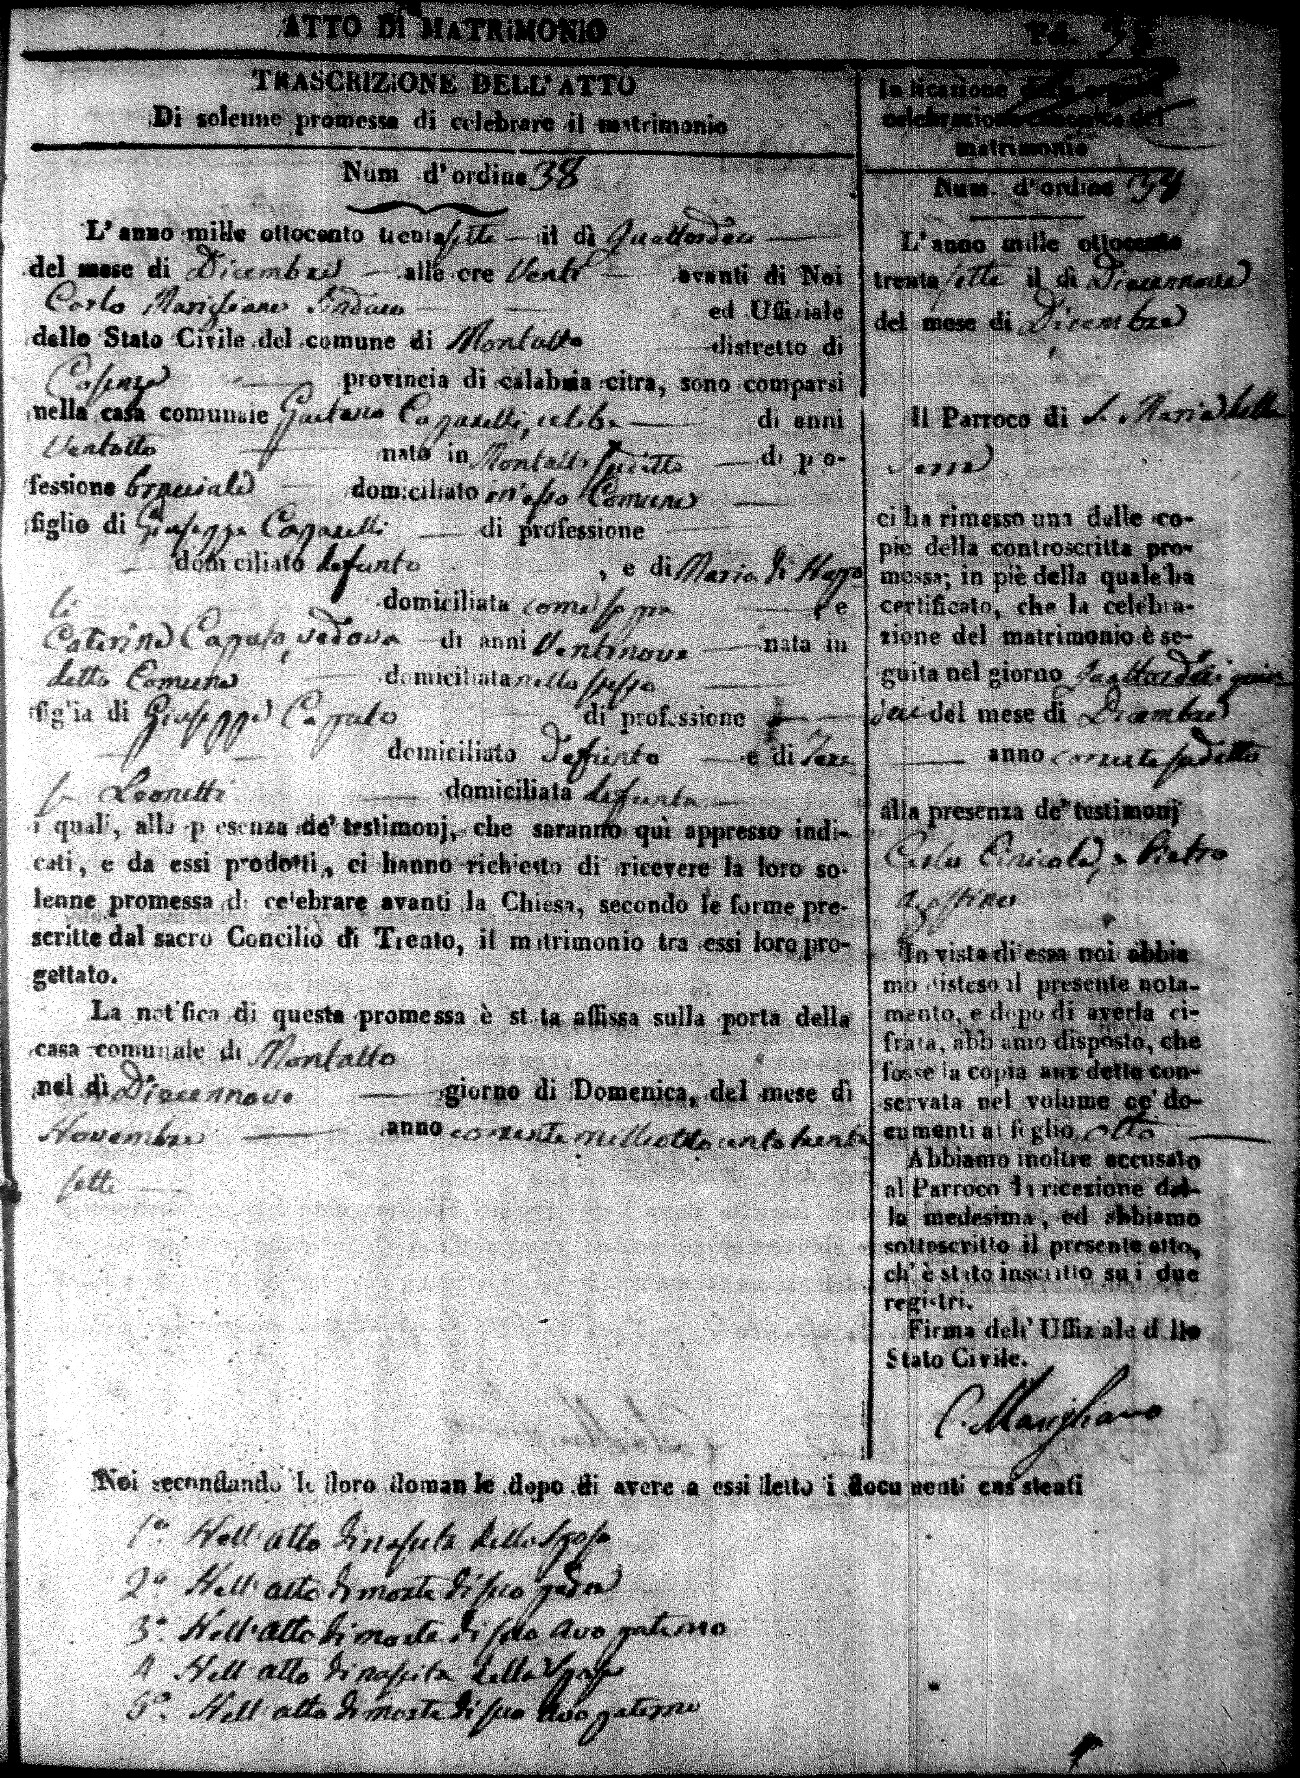 ATTO DI MATRIMONIO
TRASCRIZIONE DELL'ATTO
Di solenne promessa di celebrare il matrimonio
Num d'ordine 38
L'anno mille ottocento trenta sette il dì Quattordeci
del mese di Dicembre alle ore Venti avanti di Noi
Carlo Marigliano Sindaco ed Uffiziale
dello Stato Civile del comune di Montalto distretto di
Cosenza provincia di calabria citra, sono comparsi
nella casa comunale Gaetano Caparelli, celibe di anni
Ventotto nato in Montalto suditto di pro-
fessione bracciale domiciliato in esso Comune
figlio di Giuseppe Caparelli di professione
domiciliato defunto, e di Maria di Napo
li domiciliata come sopra, e
Caterina Caputo, vedova di anni Ventinove nata in
detto Comune domiciliata nello stesso
figlia di Giuseppe Caputo di professione
domiciliato defunto e di Tere
sa Leonetti domiciliata defunta
i quali, alla presenza de' testimonj, che saranno quì appresso indi-
cati, e da essi prodotti, ci hanno richiesto di ricevere la loro so-
lenne promessa di celebrare avanti la Chiesa, secondo le forme pre-
scritte dal sacro Concilio di Trento, il matrimonio tra essi loro pro-
gettato.
La notifica di questa promessa è stata affissa sulla porta della
casa comunale di Montalto
nel dì Diecennove giorno di Domenica, del mese di
Novembre anno corrente milleotto cento trenta
sette
Indicazione
celebrazione canonica del
matrimonio
Num. d'ordine 38
L'anno mille ottocento
trenta sette il dì Diecennove
del mese di Dicembre
Il Parroco di S. Maria della
Serra
ci ha rimesso una delle co-
pie della controscritta pro-
messa; in piè della quale ha
certificato, che la celebra-
zione del matrimonio è se-
guita nel giorno
del mese di Dicembre
anno corrente sudetto
alla presenza de' testimonj
Carlo e Pietro
Agostino
In vista di essa noi abbia
mo disteso il presente nota-
mento, e dopo di averla ci-
frata, abbiamo disposto, che
fosse la copia anzidetta con-
servata nel volume co' do-
cumenti al foglio otto
Abbiamo inoltre accusato
al Parroco la ricezione del-
la medesima, ed abbiamo
sottoscritto il presente atto,
ch' è stato inscritto su i due
registri.
Firma dell' Uffiziale dello
Stato Civile.
C. Marigliano
Noi secondando le loro domande dopo di avere a essi letto i documenti consistenti
1o Nell'atto di nascita dello Sposo
2o Nell'atto di morte di suo padre
3o Nell'atto di morte di suo avo paterno
4 Nell atto di nascita della Sposa
5o Nell'atto di morte di suo avo paterno